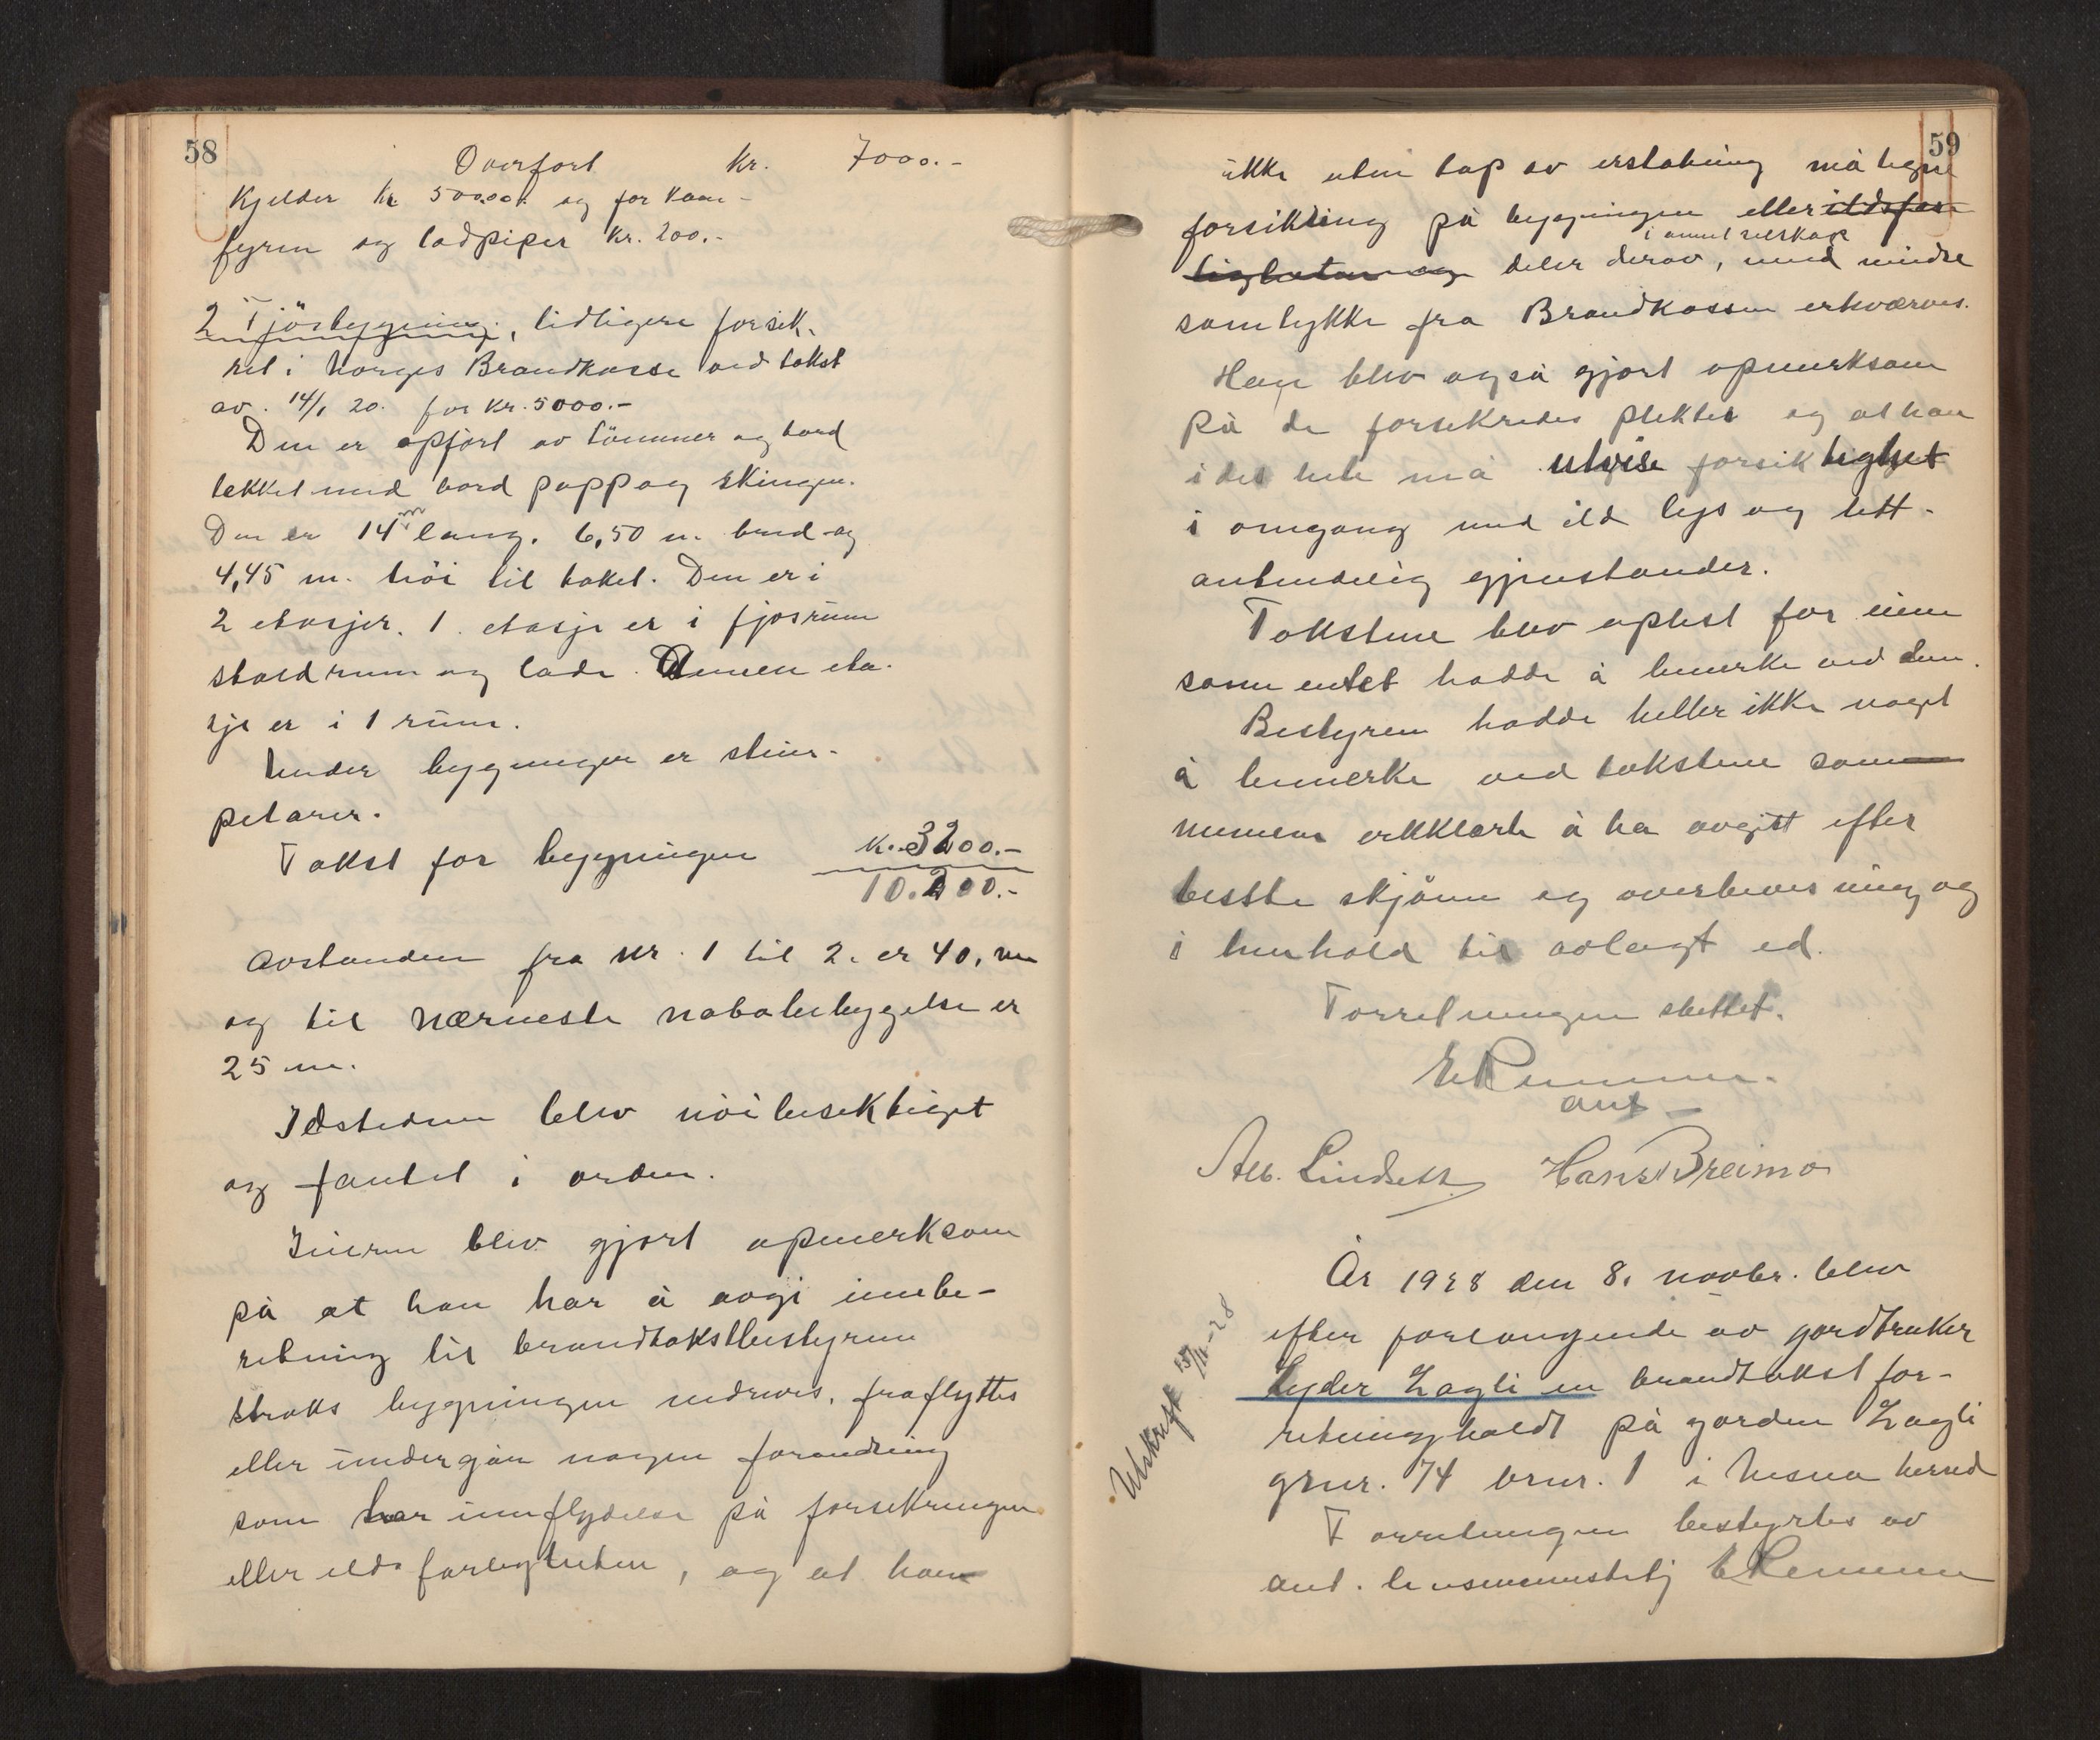 58
Overført kr. 7000.-
kjelder kr 500.00. og for kom-
fyren og ladpiper kr. 200.-
2 Fjösbygning, tidligere forsik-
ret i Norges Brandkasse ved takst
av. 14/1 20. for kr. 5000.-
Den er opført av tömmer og bord
tekket med bord papp og skingen.
Den er 14 m lang. 6,50 m. bred og
4,45 m. höi til taket. Den er i
2 etasjer. 1. etasje er i fjosrum
staldrum og lade. Annen eta-
sje er i 1 rum.
Under bygningen er stein-
petarer.
Takst for bygningen kr. 3200.-
10.200.-
Avstanden fra nr. 1 til 2. er 40, m
og til nærmeste nabobebyggelse er
25 m.
Ildstederne blev nöi besiktiget
og fantet i orden.
Eieren blev gjort opmerksom
på at han har å avgi innbe-
retning til brandtakstbestyreren
straks bygningen nedrives, fraflyttes
eller undergår nogen forandring
som har innflydelse på forsikringen
eller ildsfarligheten, og at han
59
ikke uten tap av erstatning må tegne
forsikring på bygningen eller ildsfar-
i annet selskap
ligheten og deler derav, med mindre
samtykke fra Brandkassen erhverves.
Han blev også gjort opmerksom
på de forsikredes plikter og at han
i det hele må utvise forsiktighet
i omgang med ild lys og lett-
antendelig gjenstander.
Takstene blev oplest for eieren
som intet hadde å bemerke ved dem.
Bestyreren hadde heller ikke noget
å bemerke ved takstene som
mennene erkklærte å ha avgitt efter
bestte skjönn og overbevisning og
i henhold til avlagt ed.
Forretningen sluttet.
E Remmen.
ant
Alb. Lindseth Hans Breimo
År 1928 den 8. novbr. blev
efter forlangende av gårdbruker
Lyder Zagli en brandtakst for-
retning holdt på gården Zagli
grnr. 74 brnr. 1 i Nesna herred
Forretningen bestyrtes av
ant. lensmannsbetj E Remmen
Utskrift 15/11-28